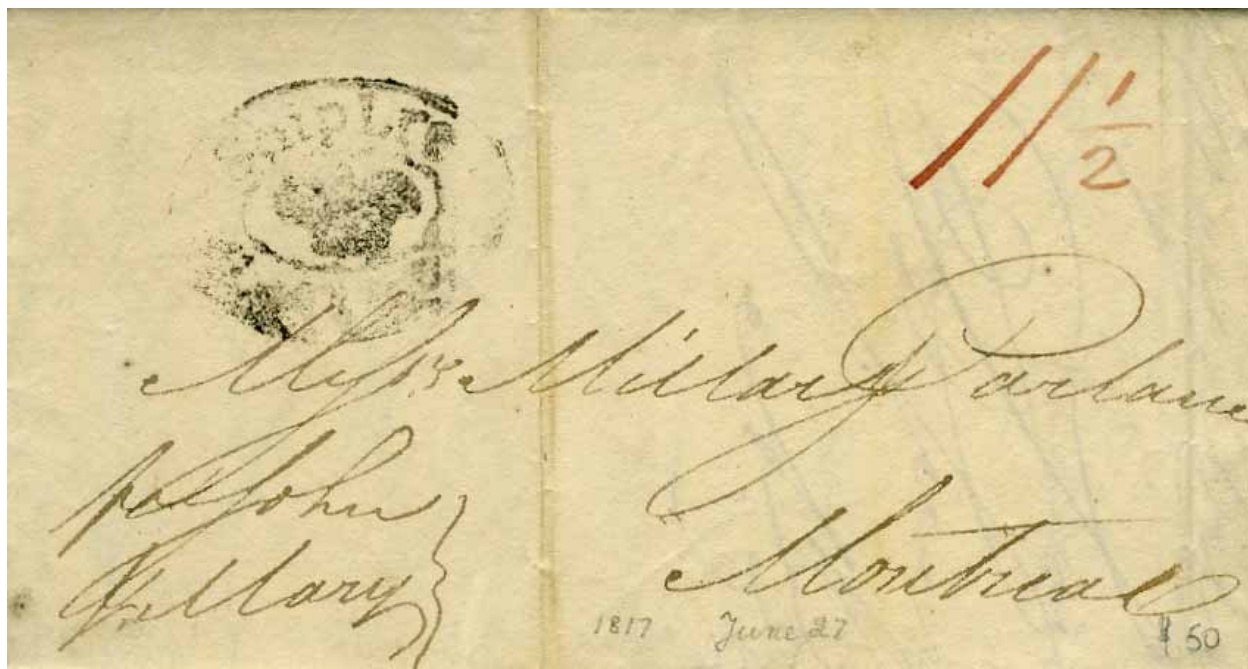 SHIP LTR
11 1/2
Messrs Millar & Parlane
pr John
& Mary
Montreal
1817 June 27
$50